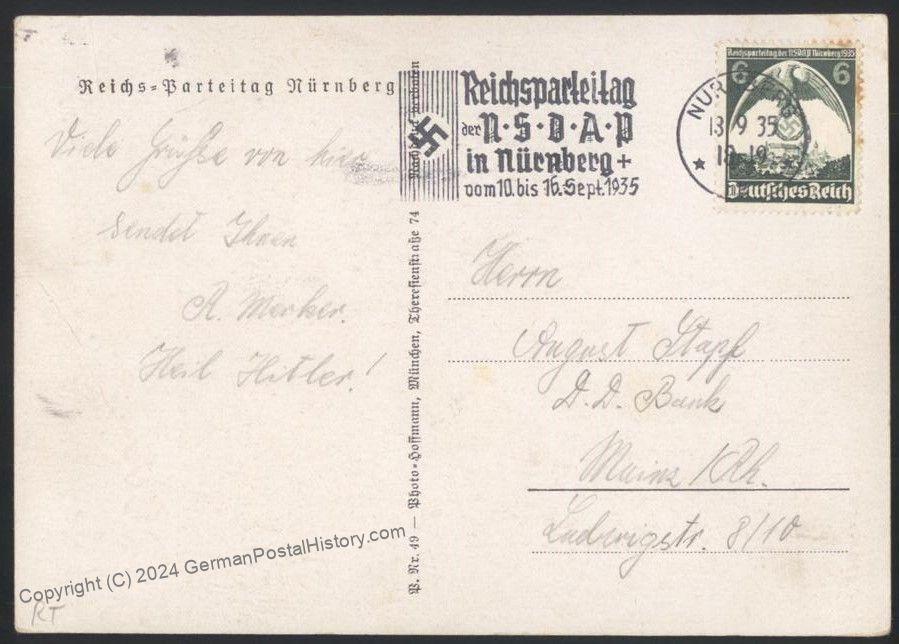 Reichs=Parteitag Nürnberg
Viele Grüße von hier
sendet Ihnen
A. Merker.
Heil Hitler!
P. Nr. 49 — Photo-Hoffmann, München, Theresienstraße 74
Nachdruck verboten
Reichsparteitag
der N·S·D·A·P
in Nürnberg +
vom 10. bis 16. Sept. 1935
NÜRNBERG
13 9 35
Reichsparteitag der NSDAP Nürnberg 1935
6 6
Deutsches Reich
Herrn
August Stapf
D. D. Bank
Mainz /Rh.
Ludwigstr. 8/10
Copyright (C) 2024 GermanPostalHistory.com
RT